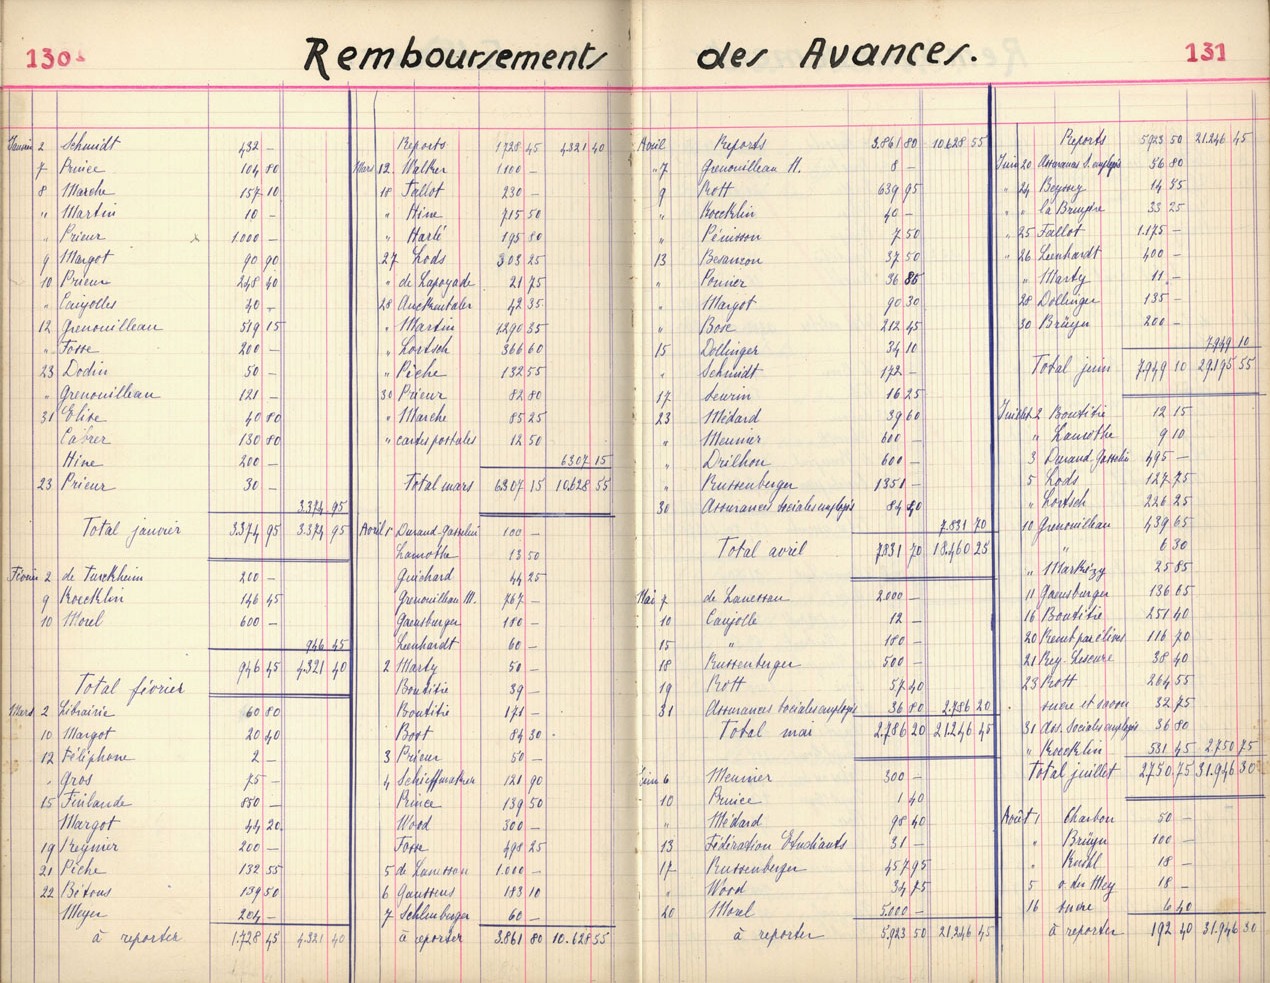 130
Remboursements des Avances.
131
Janvier 2 Schmidt 432 -
7 Prince 104 80
8 Marche 157 10
" Martin 10 -
" Prieur 1.000 -
9 Margot 90 90
10 Prieur 248 40
" Caujolles 40 -
12 Grenouilleau 519 15
" Fosse 200 -
23 Dodin 50 -
" Grenouilleau 121 -
31 Elise 40 80
Cabrer 130 80
Hine 200 -
23 Prieur 30 -
3.374 95
Total janvier 3.374 95 3.374 95
Février 2 de Turckheim 200 -
9 Koecklin 146 45
10 Morel 600 -
946 45
946 45 4.321 40
Total février
Mars 2 Librairie 60 80
10 Margot 20 40
12 Téléphone 2 -
" Gros 75 -
15 Finlande 850 -
Margot 44 20
19 Reynier 200 -
21 Piche 132 55
22 Bétous 139 50
Meyer 204 -
à reporter 1.728 45 4.321 40
Reports 1728 45 4321 40
Mars 12 Walker 1.100 -
18 Fallot 230 -
" Hine 715 50
" Harlé 195 80
27 Lods 303 25
" de Lapoyade 21 75
28 Auckentaler 42 35
" Martin 1290 35
" Lortsch 366 60
" Piche 132 55
30 Prieur 82 80
" Marche 85 25
" cartes postales 12 50
6307 15
Total mars 6307 15 10.628 55
Avril 1 Durand-Gasselin 100 -
Lamothe 13 50
Guichard 44 25
Grenouilleau M. 767 -
Gaensburger 180 -
Leenhardt 60 -
2 Marty 50 -
Boutitié 39 -
Boutitié 171 -
Boot 84 30
3 Prieur 50 -
4 Schieffmacher 121 90
Prince 139 50
Wood 300 -
Fosse 498 25
5 de Lanessan 1.000 -
6 Gaussens 183 10
7 Schlumberger 60 -
à reporter 3.861 80 10.628 55
Avril Reports 3.861 80 10.628 55
" 7 Grenouilleau H. 8 -
9 Rott 639 95
" Koecklin 40 -
" Pénisson 7 50
13 Besançon 37 50
" Pounier 36 85
" Margot 90 30
" Bose 212 45
15 Dollinger 34 10
" Schmidt 172 -
17 Seurin 16 25
23 Médard 39 60
" Meunier 600 -
" Drilhon 600 -
" Russenberger 1351 -
30 Assurances sociales employés 84 40
7.831 70
Total avril 7831 70 18.460 25
Mai 7 de Lanessan 2.000 -
10 Caujolle 12 -
15 " 180 -
18 Russenberger 500 -
19 Rott 57 40
31 Assurances sociales employés 36 80 2.786 20
Total mai 2.786 20 21.246 45
Juin 6 Meunier 300 -
10 Prince 1 40
" Médard 98 40
13 Fédération Etudiants 31 -
17 Russenberger 457 95
" Wood 34 75
20 Morel 5.000 -
à reporter 5.923 50 21.246 45
Reports 5923 50 21.246 45
Juin 20 Assurances S. employés 56 80
" 24 14 55
" " la Bruyère 33 25
" 25 Fallot 1.175 -
" 26 Leenhardt 400 -
" Marty 11 -
28 Dollinger 135 -
30 Brüyn 200 -
7.949 10
Total juin 7949 10 29.195 55
Juillet 2 Boutitié 12 15
" Lamothe 9 10
3 Durand Gasselin 495 -
5 Lods 127 75
" Lortsch 226 25
10 Grenouilleau 439 65
" 6 30
" Markizy 25 85
11 Gaensburger 136 65
16 Boutitié 251 40
20 116 70
21 Rey-Lescure 38 40
23 Rott 264 55
sucre et savon 32 75
31 ass. Sociales employés 36 80
" Koecklin 531 45 2.750 75
Total juillet 2750 75 31.946 30
Août 1 Charbon 50 -
" Brüyn 100 -
" Ruehl 18 -
5 v. der Mey 18 -
16 sucre 6 40
à reporter 192 40 31.946 30